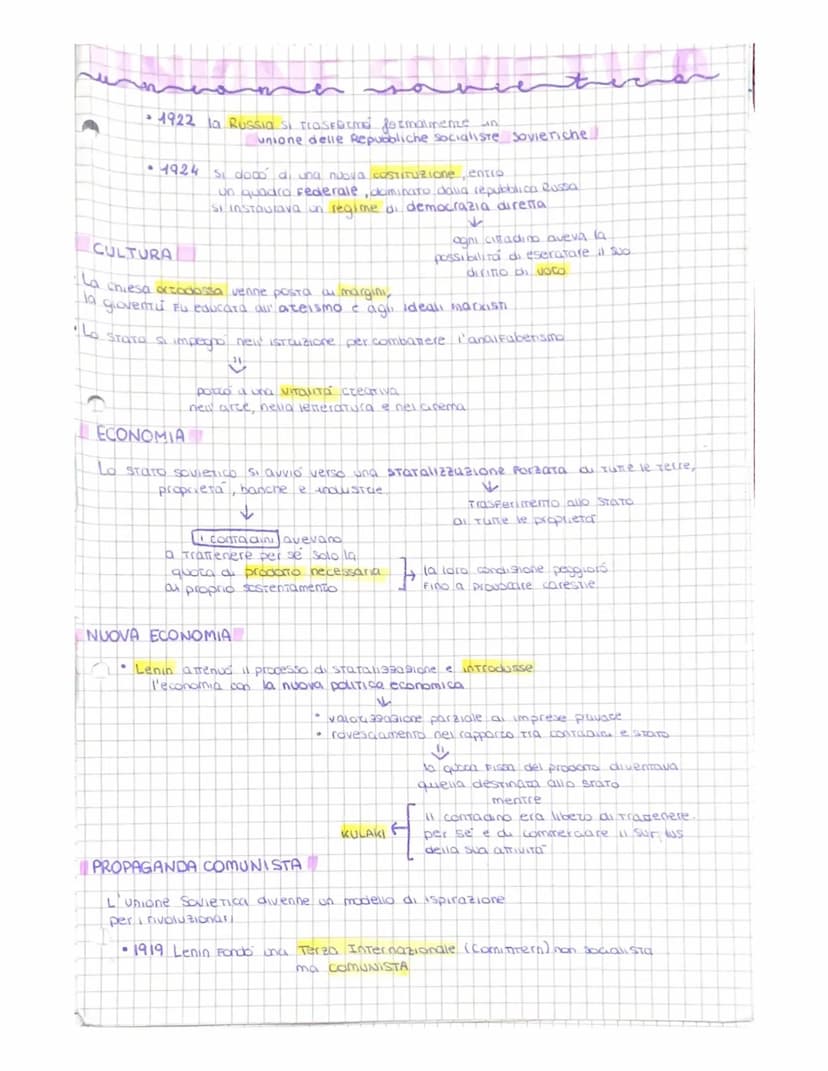 UNIONE SOVIETICA
unione sovietica
• 1922 la Russia si trasformò formalmente in
unione delle Repubbliche socialiste sovietiche
• 1924 si dotò di una nuova costituzione, entro
un quadro federale, dominato dalla repubblica Russa
si instaurava un regime di democrazia diretta
↓
ogni cittadino aveva la
possibilità di esercitare il suo
diritto di voto
CULTURA
La chiesa ortodossa venne posta ai margini,
la gioventù fu educata all'ateismo e agli ideali marxisti
• Lo stato si impegnò nell'istruzione per combattere l'analfabetismo
⇓
portò a una vitalità creativa
nell'arte, nella letteratura e nel cinema
ECONOMIA
Lo stato sovietico si avviò verso una statalizzazione forzata di tutte le terre,
proprietà, banche e industrie
↓
Trasferimento allo stato
di tutte le proprietà
↓
i contadini avevano
a trattenere per sé solo la
quota di prodotto necessaria
al proprio sostentamento
→ la loro condizione peggiorò
fino a provocare carestie
NUOVA ECONOMIA
• Lenin attenuò il processo di statalizzazione e introdusse
l'economia con la nuova politica economica
⇓
• valorizzazione parziale di imprese private
• rovesciamento nel rapporto tra contadini e stato
⇓
la quota fissa del prodotto diventava
quella destinata allo stato
mentre
il contadino era libero di trattenere
KULAKI ← per sé e di commerciare il surplus
della sua attività
PROPAGANDA COMUNISTA
L'unione Sovietica divenne un modello di ispirazione
per i rivoluzionari
• 1919 Lenin fondò una Terza Internazionale (Comintern) non socialista
ma COMUNISTA